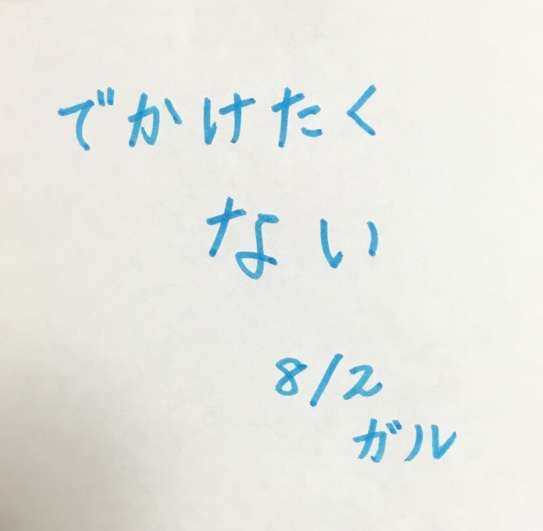 でかけたく
ない
8/2
ガル